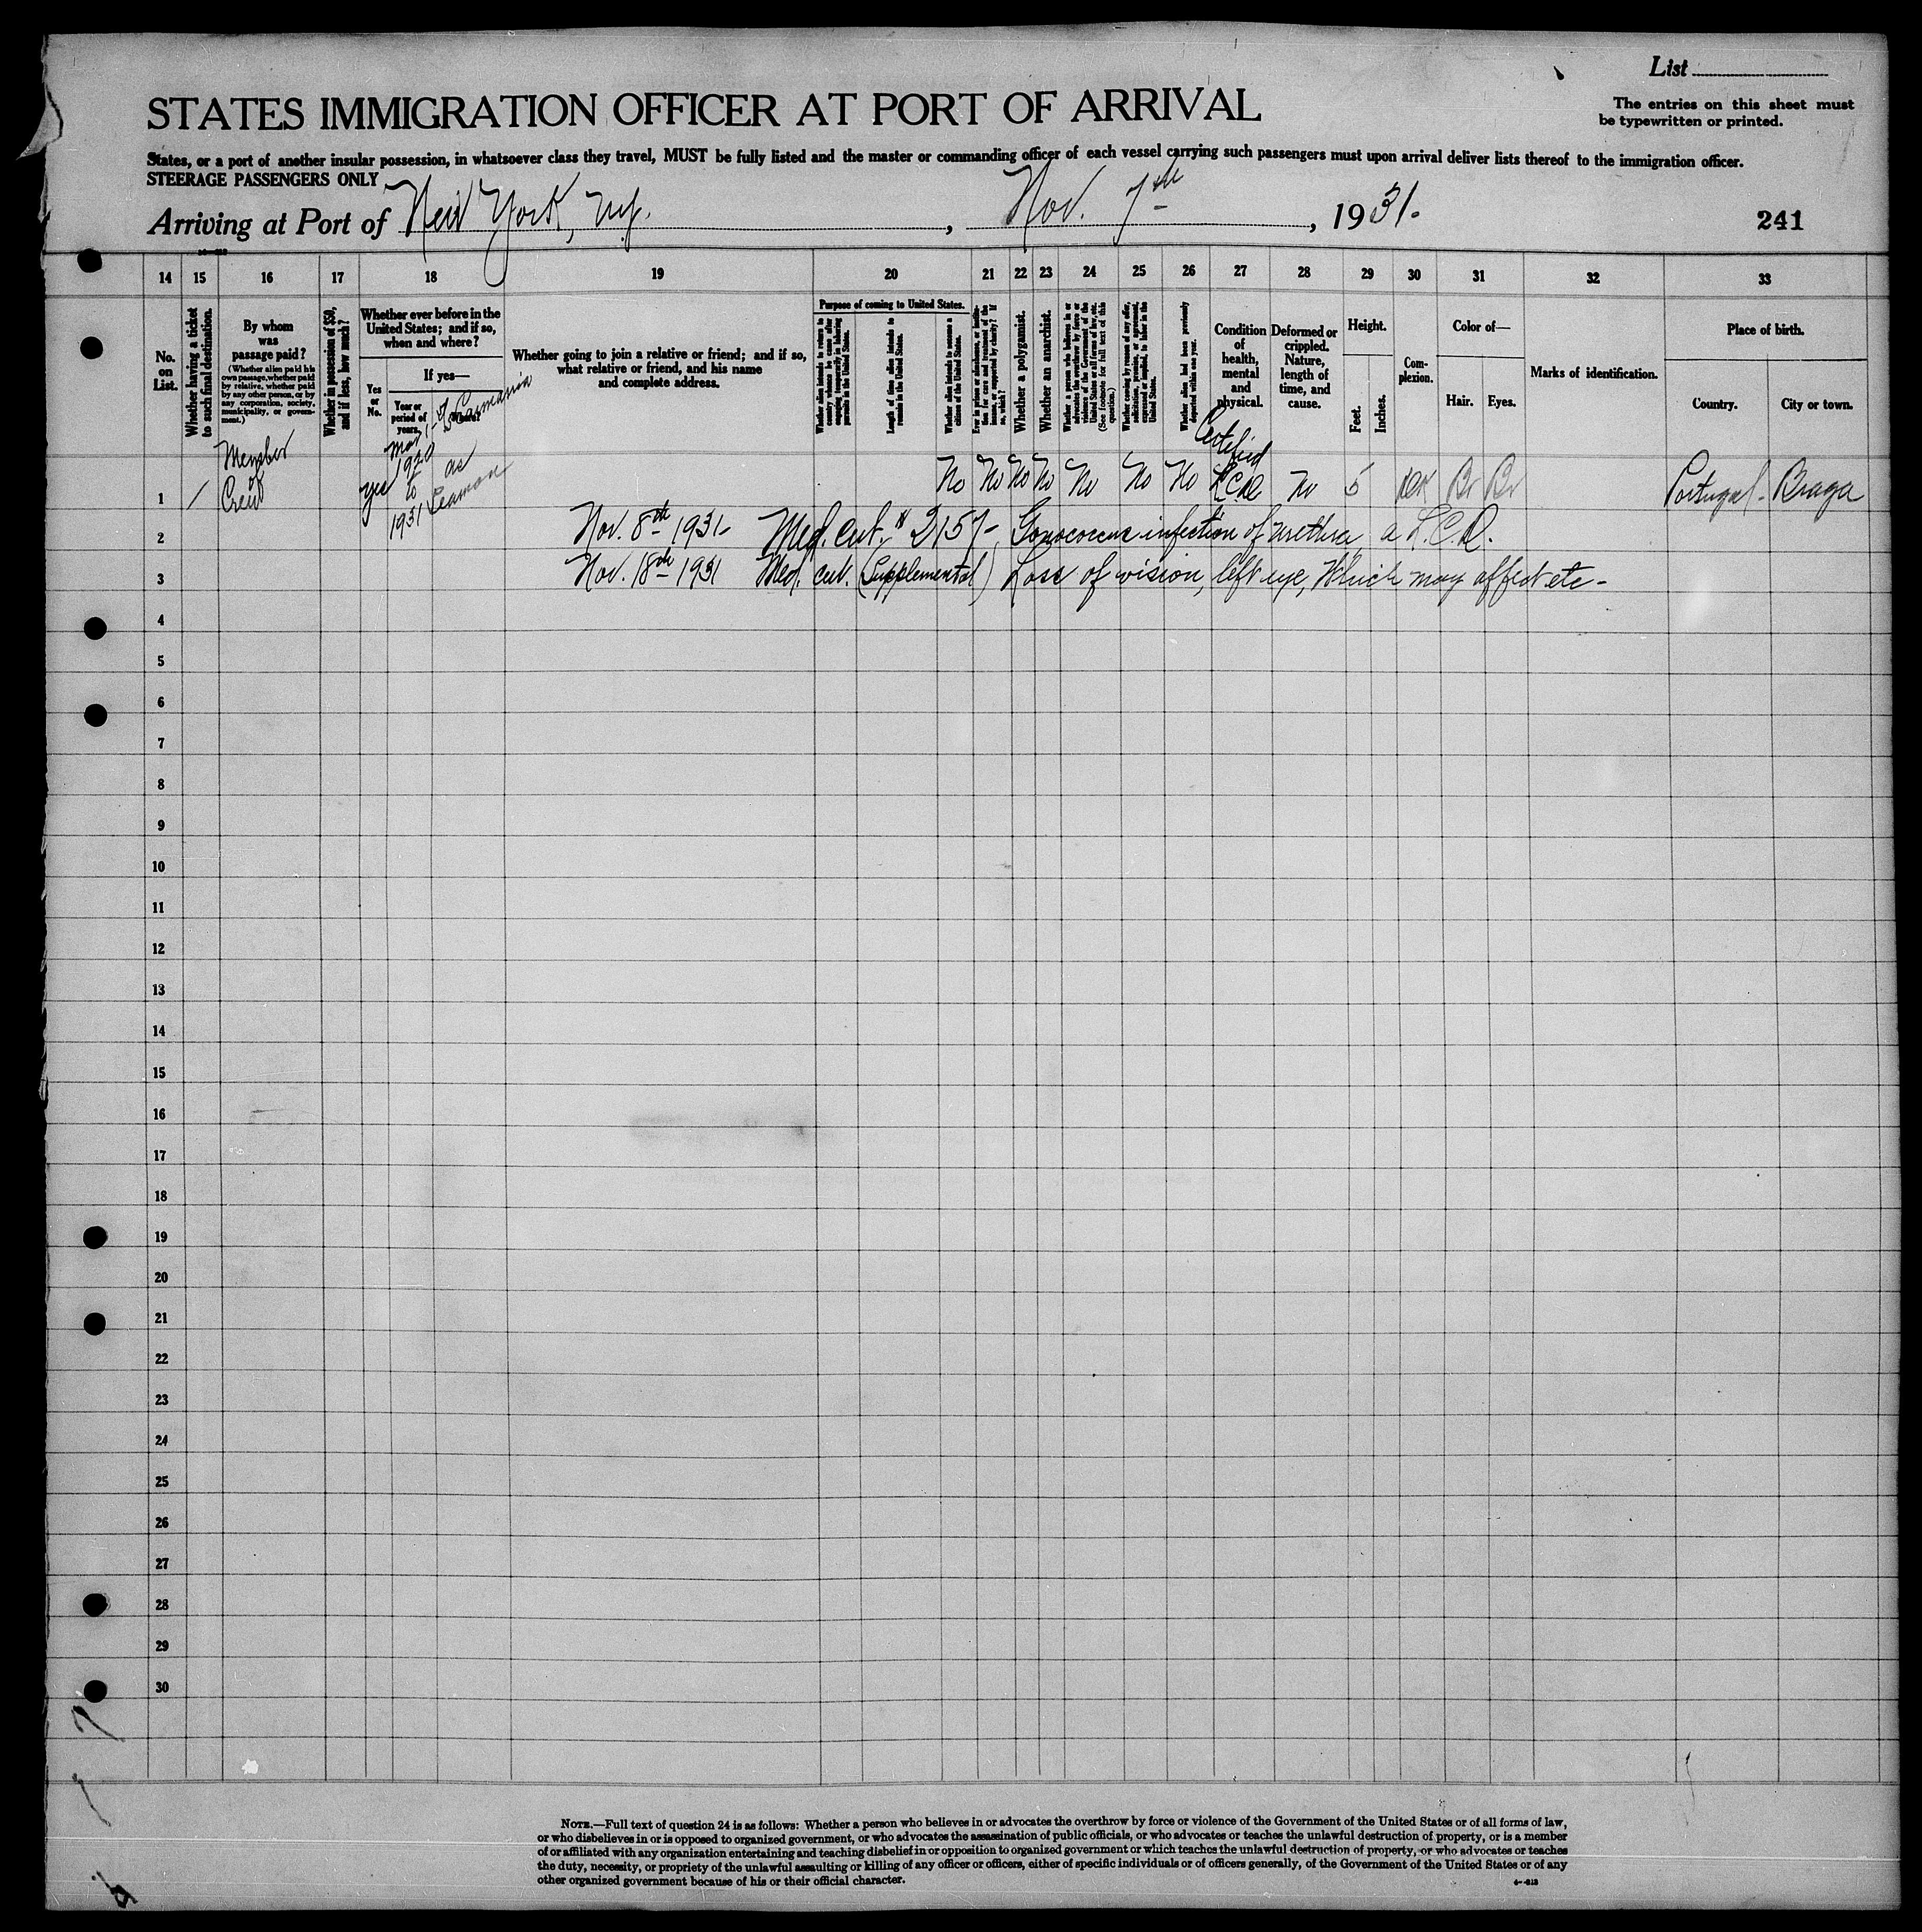 List
STATES IMMIGRATION OFFICER AT PORT OF ARRIVAL
The entries on this sheet must
be typewritten or printed.
States, or a port of another insular possession, in whatsoever class they travel, MUST be fully listed and the master or commanding officer of each vessel carrying such passengers must upon arrival deliver lists thereof to the immigration officer.
STEERAGE PASSENGERS ONLY
Arriving at Port of New York, N.Y. , Nov. 7th , 1931.
241
14 15 16 17 18 19 20 21 22 23 24 25 26 27 28 29 30 31 32 33
No.
on
List.
Whether having a ticket
to such final destination.
By whom
was
passage paid?
(Whether alien paid his
own passage, whether paid
by relative, whether paid
by any other person, or by
any corporation, society,
municipality, or govern-
ment.)
Whether in possession of $50,
and if less, how much?
Whether ever before in the
United States; and if so,
when and where?
Yes
or
No.
If yes—
Year or
period of
years.
Where?
Whether going to join a relative or friend; and if so,
what relative or friend, and his name
and complete address.
Purpose of coming to United States.
Whether alien intends to return to
country whence he came after
engaging temporarily in laboring
pursuits in the United States.
Length of time alien intends to
remain in the United States.
Whether alien intends to become a
citizen of the United States.
Ever in prison or almshouse, or institu-
tion for care and treatment of the
insane, or supported by charity? If
so, which?
Whether a polygamist.
Whether an anarchist.
Whether a person who believes in or
advocates the overthrow by force or
violence of the Government of the
United States or all forms of law, etc.
(See footnote for full text of this
question.)
Whether coming by reason of any offer,
solicitation, promise, or agreement,
expressed or implied, to labor in the
United States.
Whether alien had been previously
deported within one year.
Condition
of
health,
mental
and
physical.
Deformed or
crippled.
Nature,
length of
time, and
cause.
Height.
Feet.
Inches.
Com-
plexion.
Color of—
Hair.
Eyes.
Marks of identification.
Place of birth.
Country.
City or town.
Member
of
Crew
yes
1920
to
1931
as
Seaman
Certified
1 / No No No No No No No L.C.D. No 5 Dk Br Br Portugal - Braga
2 Nov. 8th 1931 - Med. cert. # 2157 - Gonococcus infection of urethra, a L.C.D.
3 Nov. 18th 1931 Med. cert. (Supplemental) Loss of vision, left eye, Which may affect etc -
4
5
6
7
8
9
10
11
12
13
14
15
16
17
18
19
20
21
22
23
24
25
26
27
28
29
30
NOTE.—Full text of question 24 is as follows: Whether a person who believes in or advocates the overthrow by force or violence of the Government of the United States or of all forms of law,
or who disbelieves in or is opposed to organized government, or who advocates the assassination of public officials, or who advocates or teaches the unlawful destruction of property, or is a member
of or affiliated with any organization entertaining and teaching disbelief in or opposition to organized government or which teaches the unlawful destruction of property, or who advocates or teaches
the duty, necessity, or propriety of the unlawful assaulting or killing of any officer or officers, either of specific individuals or of officers generally, of the Government of the United States or of any
other organized government because of his or their official character.